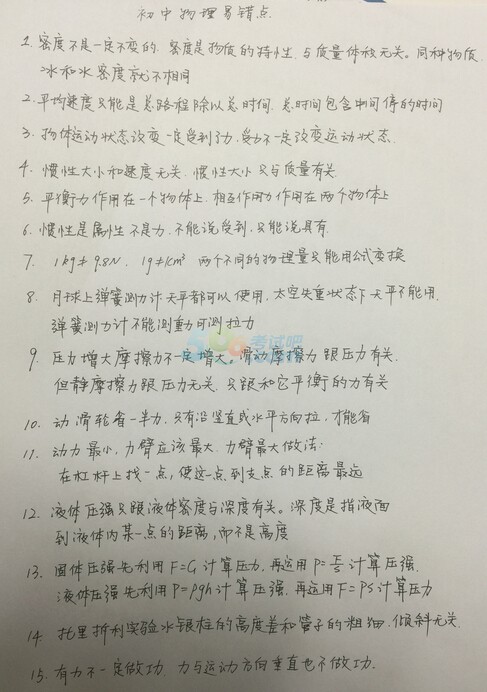 初中物理易错点
1. 密度不是一定不变的. 密度是物质的特性. 与质量体积无关。同种物质.
冰和水密度就不相同
2. 平均速度只能是总路程除以总时间. 总时间包含中间停的时间
3. 物体运动状态改变一定受到力, 受力不一定改变运动状态.
4. 惯性大小和速度无关. 惯性大小只与质量有关
5. 平衡力作用在一个物体上. 相互作用力作用在两个物体上
6. 惯性是属性不是力. 不能说受到. 只能说具有.
7. 1kg≠9.8N. 1g≠1cm³ 两个不同的物理量只能用公式变换
8. 月球上弹簧测力计天平都可以使用, 太空失重状态下天平不能用.
弹簧测力计不能测重力可测拉力
考试吧
9. 压力增大摩擦力不一定增大, 滑动摩擦力跟压力有关.
但静摩擦力跟压力无关. 只跟和它平衡的力有关
10. 动滑轮省一半力. 只有沿竖直或水平方向拉, 才能省
11. 动力最小, 力臂应该最大. 力臂最大做法:
在杠杆上找一点, 使这一点到支点的距离最远
12. 液体压强只跟液体密度与深度有关。深度是指液面
到液体内某一点的距离, 而不是高度
13. 固体压强先利用F=G计算压力, 再运用P=F/S计算压强.
液体压强先利用P=ρgh计算压强. 再运用F=PS计算压力
14. 托里拆利实验水银柱的高度差和管子的粗细. 倾斜无关.
15. 有力不一定做功. 力与运动方向垂直也不做功.